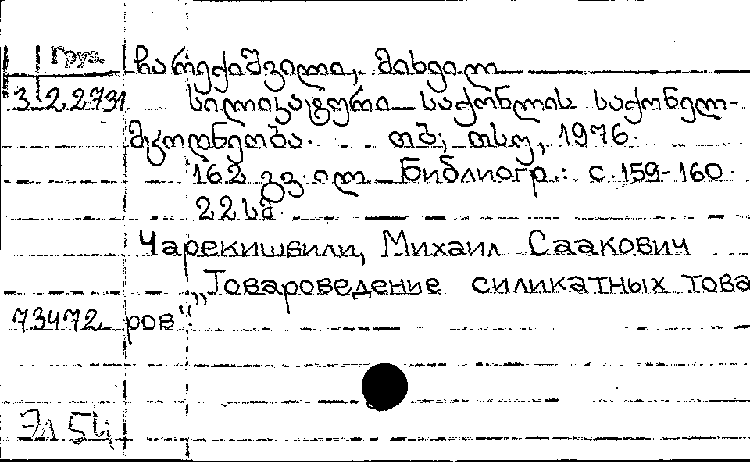 Груз. ჩარექიშვილი, მიხეილ
3.2.2731 სილიკატური საქონლის საქონელ-
მცოდნეობა. თბ., თსუ, 1976.
162 გვ. ილ. Библиогр.: с. 159-160.
22 სმ.
Чарекишвили, Михаил Саакович
„Товароведение силикатных това
73472 ров".
54